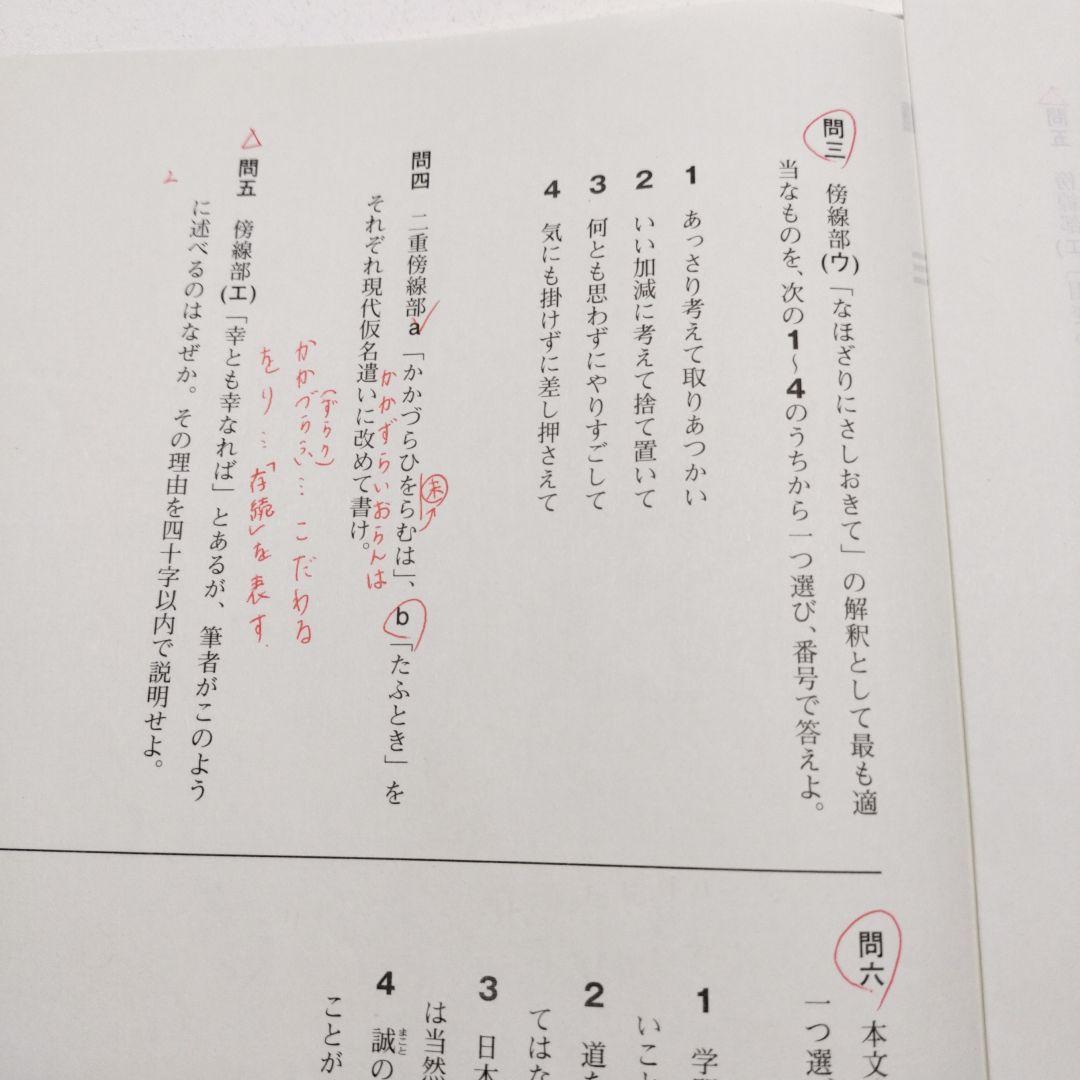 問三 傍線部(ウ)「なほざりにさしおきて」の解釈として最も適
当なものを、次の1~4のうちから一つ選び、番号で答えよ。
1 あっさり考えて取りあつかい
2 いい加減に考えて捨て置いて
3 何とも思わずにやりすごして
4 気にも掛けずに差し押さえて
問四 二重傍線部a「かかづらひをらむは」、b「たふとき」を
未
かかずらいおらんは
それぞれ現代仮名遣いに改めて書け。
(ずらう)
かかづらふ…こだわる
をり…「存続」を表す.
問五 傍線部(エ)「幸とも幸なれば」とあるが、筆者がこのよう
に述べるのはなぜか。その理由を四十字以内で説明せよ。
問六 本文
一つ選
1 学
いこと
2 道を
てはな
3 日本
は当然
4 誠の
まこと
ことが
問五 傍線部(エ)